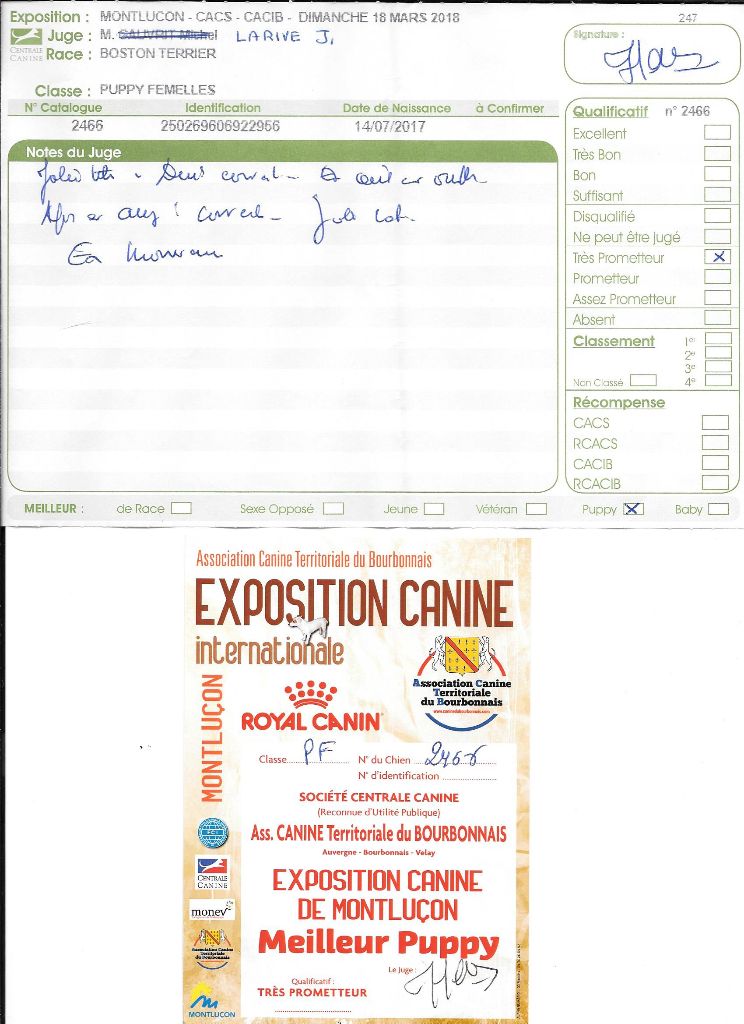 Exposition : MONTLUCON - CACS - CACIB - DIMANCHE 18 MARS 2018
247
Juge : M. GAUVRIT Michel LARIVE J.
CENTRALE CANINE
Race : BOSTON TERRIER
Signature :
Classe : PUPPY FEMELLES
N° Catalogue Identification Date de Naissance à Confirmer
2466 250269606922956 14/07/2017
Notes du Juge
En mouvement
Qualificatif n° 2466
Excellent
Très Bon
Bon
Suffisant
Disqualifié
Ne peut être jugé
Très Prometteur X
Prometteur
Assez Prometteur
Absent
Classement 1er
2e
3e
Non Classé 4e
Récompense
CACS
RCACS
CACIB
RCACIB
MEILLEUR : de Race Sexe Opposé Jeune Vétéran Puppy X Baby
Association Canine Territoriale du Bourbonnais
EXPOSITION CANINE
internationale
MONTLUÇON
Association Canine
Territoriale
du Bourbonnais
www.caninedubourbonnais.com
ROYAL CANIN
Classe PF N° du Chien 2466
N° d'identification
SOCIÉTÉ CENTRALE CANINE
(Reconnue d'Utilité Publique)
Ass. CANINE Territoriale du BOURBONNAIS
Auvergne - Bourbonnais - Velay
FCI
CENTRALE
CANINE
monev
Association Canine
Territoriale
du Bourbonnais
MONTLUÇON
EXPOSITION CANINE
DE MONTLUÇON
Meilleur Puppy
Le Juge :
Qualificatif :
TRÈS PROMETTEUR